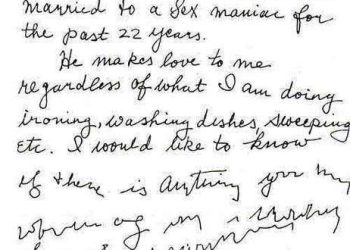 married to a sex maniac for
the past 22 years.
He makes love to me
regardless of what I am doing
ironing, washing dishes, sweeping
etc. I would like to know
if there is anything you